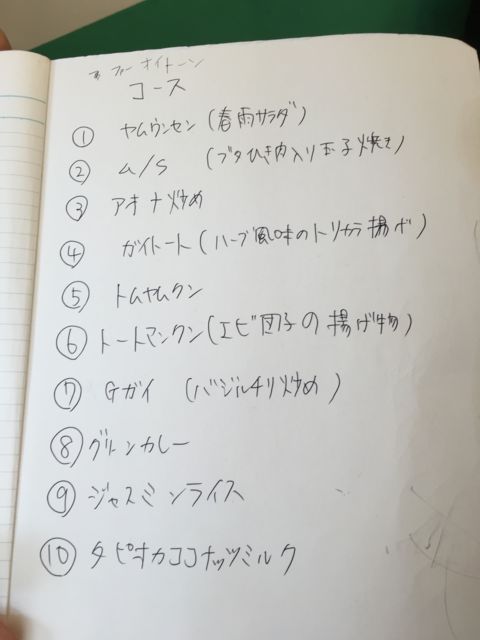 ファーオイトーン
コース
① ヤムウンセン(春雨サラダ)
② ム/S (ブタひき肉入り玉子焼き)
③ アオナ炒め
④ ガイトート(ハーブ風味のトリカラ揚げ)
⑤ トムヤムクン
⑥ トートマンクン(エビ団子の揚げ物)
⑦ Gガイ (バジルチリ炒め)
⑧ グリーンカレー
⑨ ジャスミンライス
⑩ タピオカココナッツミルク